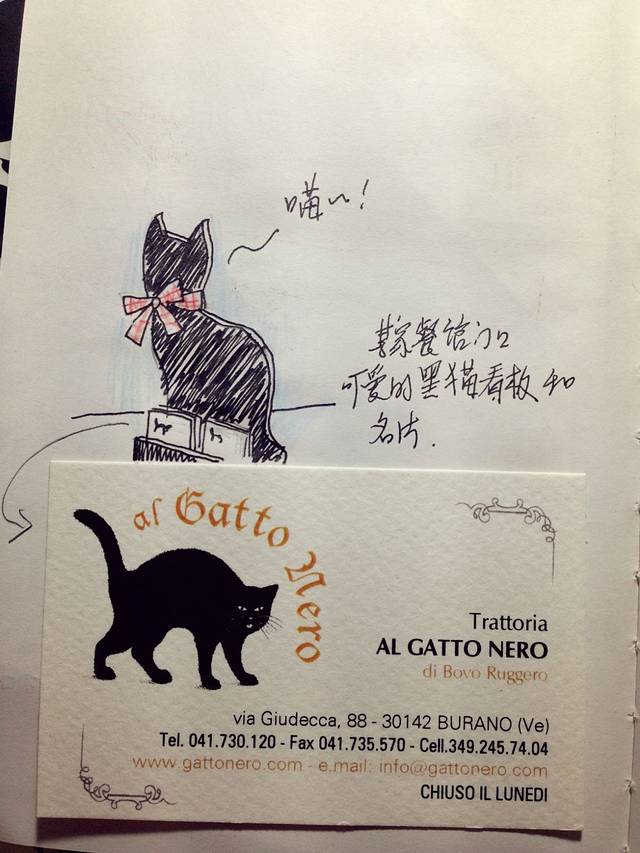 喵~!
某家餐馆门口
可爱的黑猫看板和
名片.
al Gatto Nero
Trattoria
AL GATTO NERO
di Bovo Ruggero
via Giudecca, 88 - 30142 BURANO (Ve)
Tel. 041.730.120 - Fax 041.735.570 - Cell.349.245.74.04
www.gattonero.com - e.mail: info@gattonero.com
CHIUSO IL LUNEDI